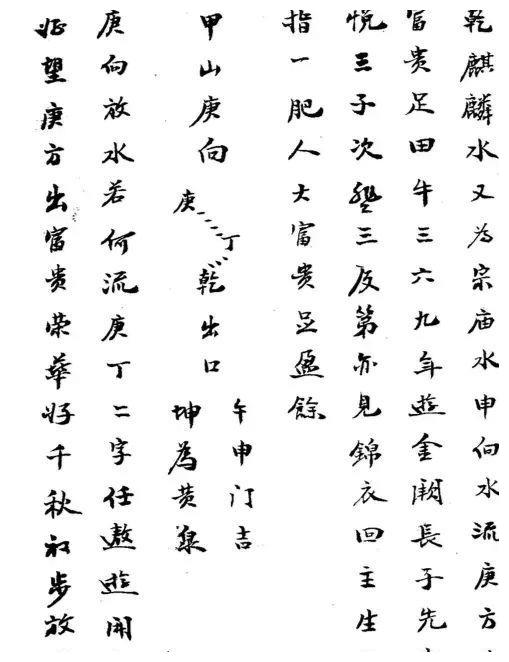 乾麒麟水又為宗庙水申向水流庚方
富贵足田牛三六九年遊金闕長子先
悦三子次登三及第亦見錦衣回主生
指一肥人大富贵足盈餘
甲山庚向
庚丁乾出口
午申门吉
坤為黄泉
庚向放水若何流庚丁二字任遨遊開
望庚方出富贵荣華好千秋初步放